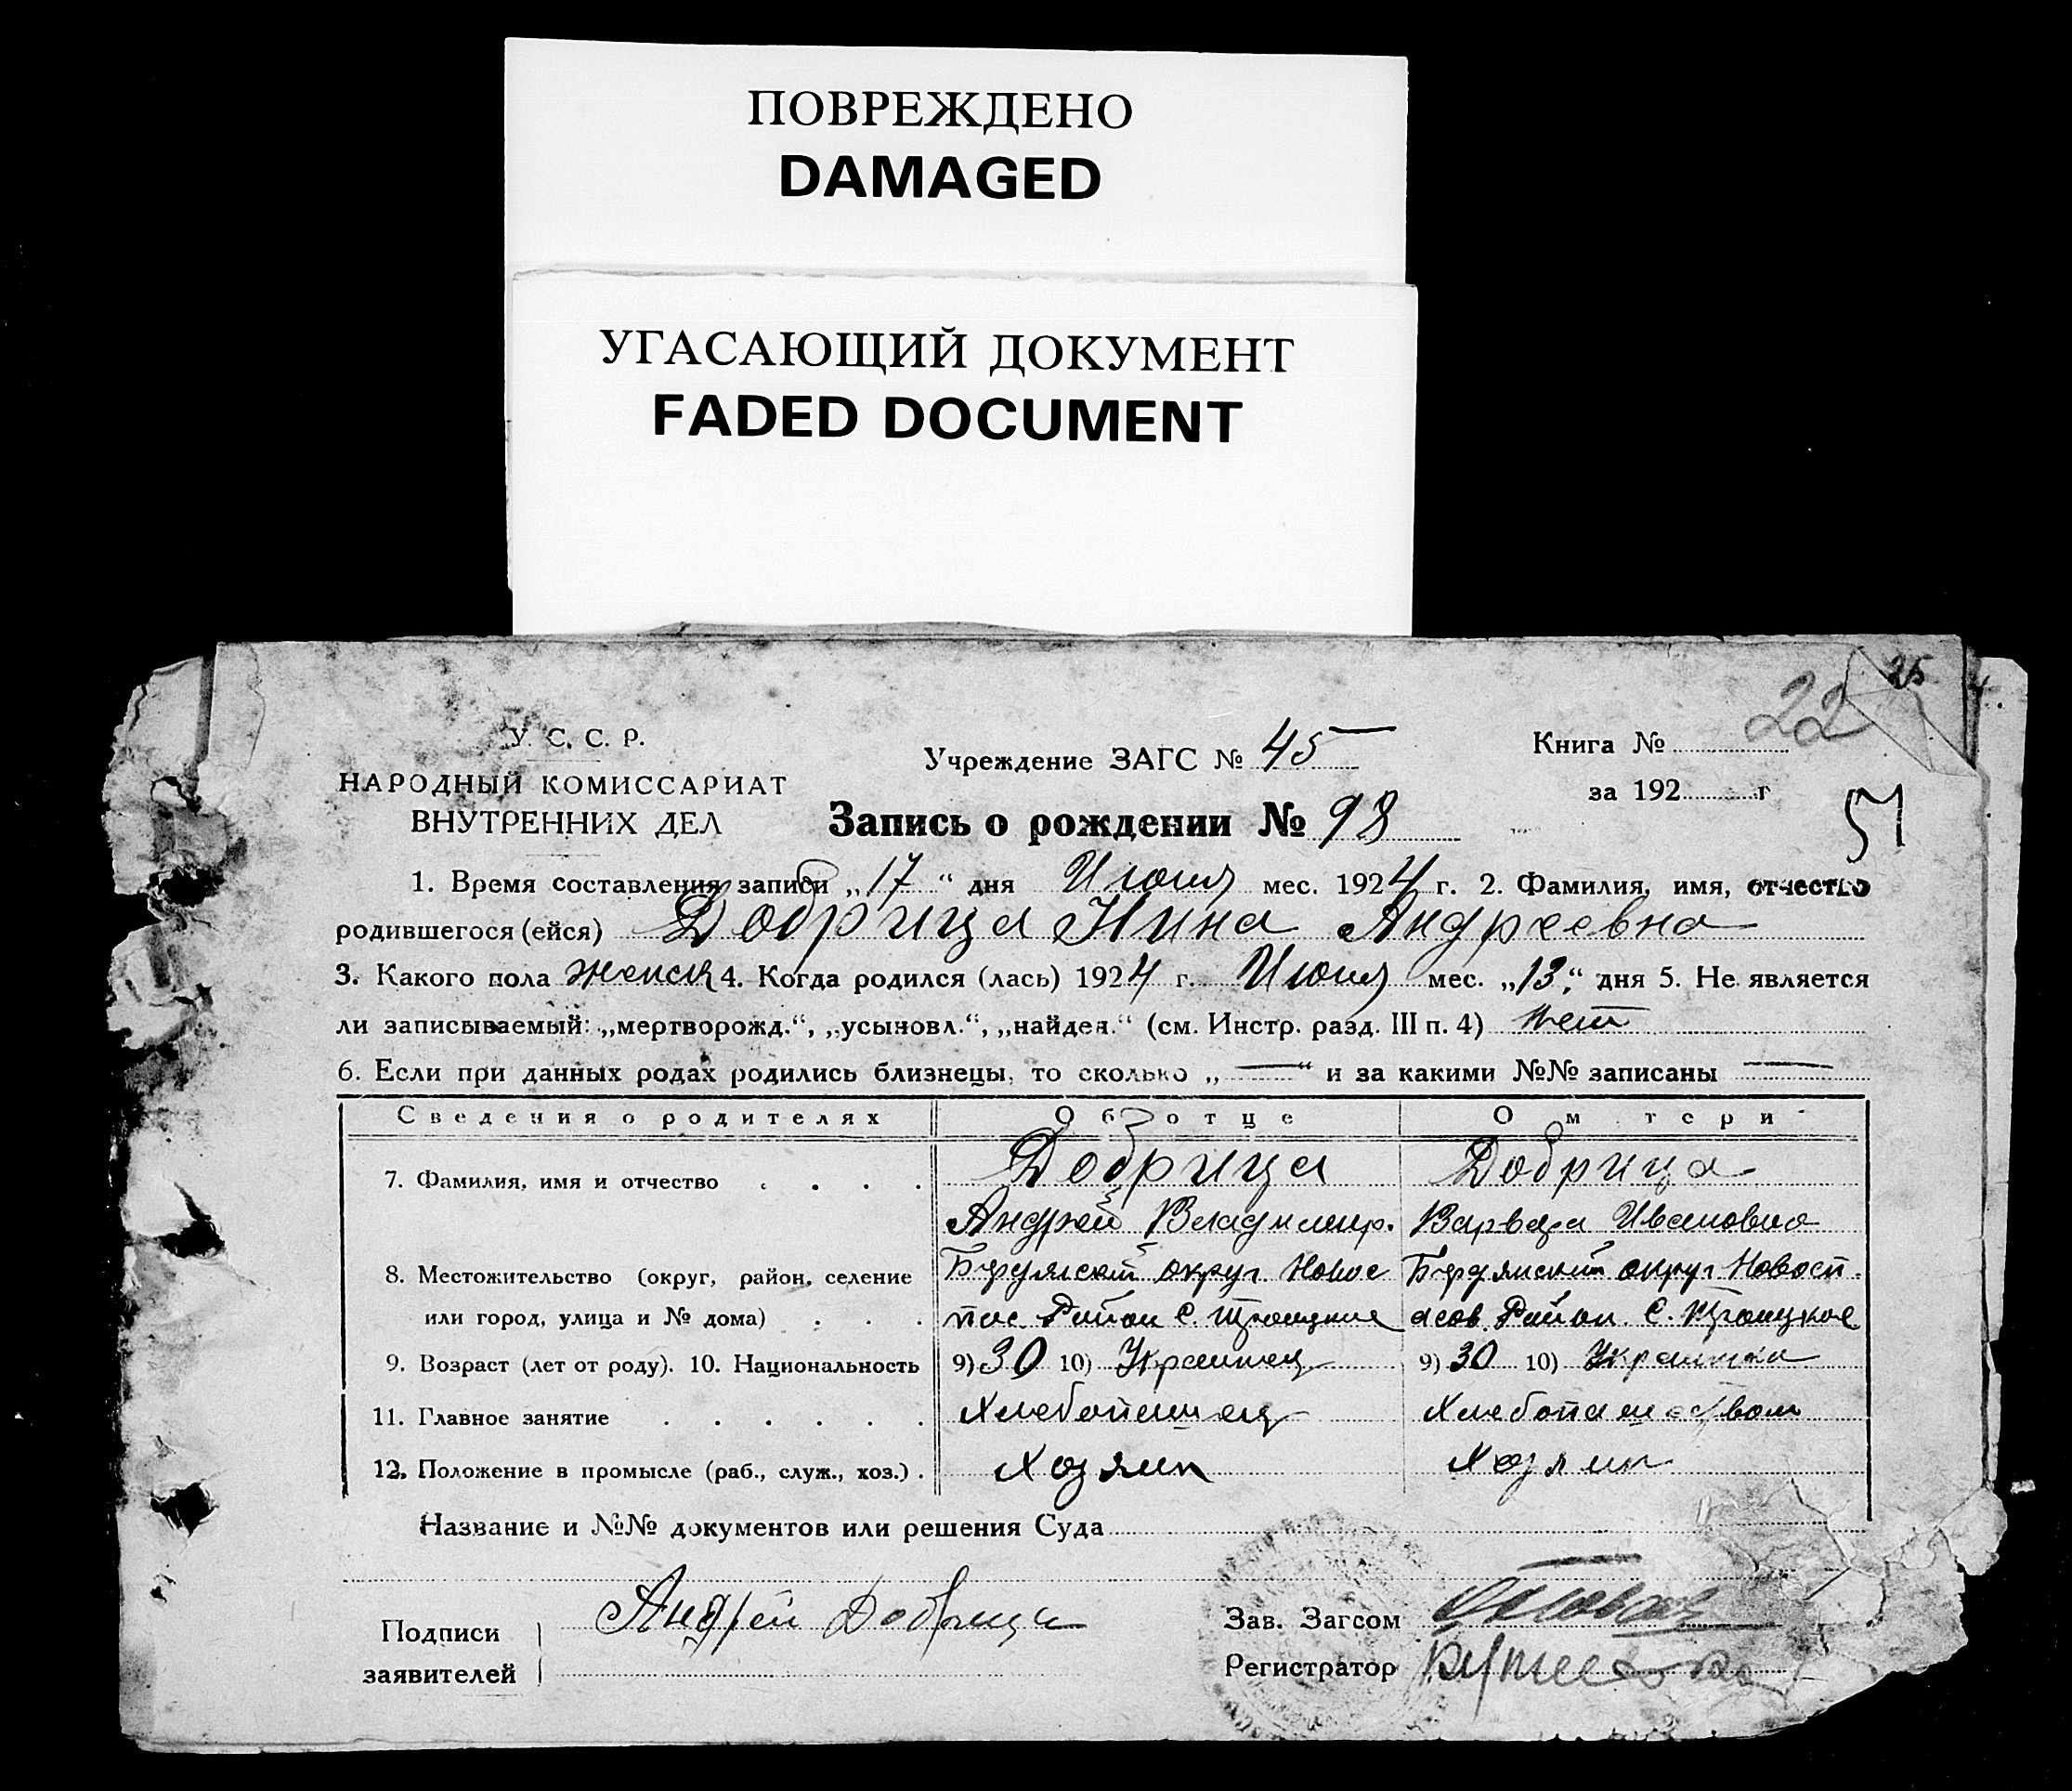 ПОВРЕЖДЕНО
DAMAGED
УГАСАЮЩИЙ ДОКУМЕНТ
FADED DOCUMENT
25
22
У. С. С. Р.
НАРОДНЫЙ КОМИССАРИАТ
ВНУТРЕННИХ ДЕЛ
Учреждение ЗАГС № 45
Книга №
за 192 г
51
Запись о рождении № 98
1. Время составления записи „17“ дня Июня мес. 1924 г. 2. Фамилия, имя, отчество
родившегося (ейся) Добрица Нина Андреевна
3. Какого пола женск 4. Когда родился (лась) 1924 г. Июня мес. „13“ дня 5. Не является
ли записываемый: „мертворожд.“, „усыновл.“, „найден.“ (см. Инстр. разд. III п. 4) нет
6. Если при данных родах родились близнецы, то сколько „—“ и за какими №№ записаны —
Сведения о родителях Об отце О м тери
7. Фамилия, имя и отчество . . . . Добрица Добрица
Андрей Владимир. Варвара Ивановна
8. Местожительство (округ, район, селение Бердянский округ Новос Бердянский округ Новосп
или город, улица и № дома) . . . пас Район С. Троицкое асов. Район. С. Троицкое
9. Возраст (лет от роду). 10. Национальность 9) 30 10) Украинец 9) 30 10) Украинка
11. Главное занятие . . . . . . Хлебопашец Хлебопашеством
12. Положение в промысле (раб., служ., хоз.) . Хозяин Хозяин
Название и №№ документов или решения Суда
Подписи
заявителей
Андрей Добрица
Зав. Загсом
Регистратор